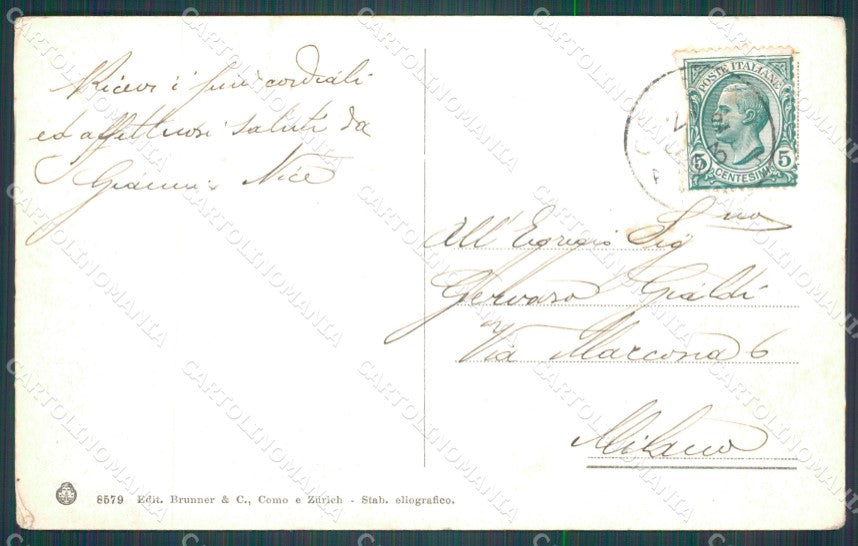 Ricevi i più cordiali
ed affettuosi saluti da
Nice
POSTE ITALIANE
5 5
CENTESIMI
All'Egregio Sig
Gervaso Gialdi
Via Marcona 6
Milano
8579 Edit. Brunner & C., Como e Zürich - Stab. eliografico.
CARTOLINOMANIA